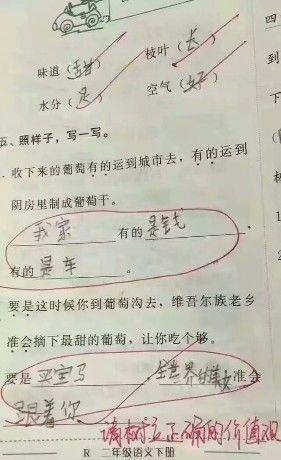 味道（甜） 枝叶（长）
水分（足） 空气（好）
五、照样子，写一写。
收下来的葡萄有的运到城市去，有的运到
阴房里制成葡萄干。
我家有的是钱，
有的是车。
要是这时候你到葡萄沟去，维吾尔族老乡
准会摘下最甜的葡萄，让你吃个够。
要是买宝马，全世界的美女准会
跟着你
请树立正确的价值观
R 二年级语文下册
四
到
下